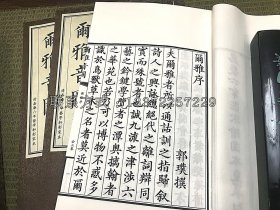 爾雅序
郭璞撰
夫爾雅者所以通詁訓之指歸叙
詩人之興詠總絶代之離詞辯同
實而殊號者也誠九流之津涉六
藝之鈐鍵學覽者之潭奥摛翰者
之華苑也若乃可以博物不惑多
識於鳥獸草木之名者莫近於爾
爾雅音圖
爾雅音圖